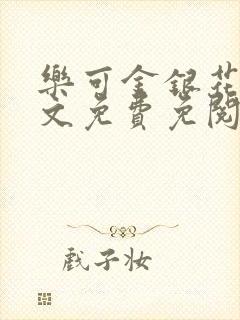 樂可金銀花
文免費免閱
戲子妝